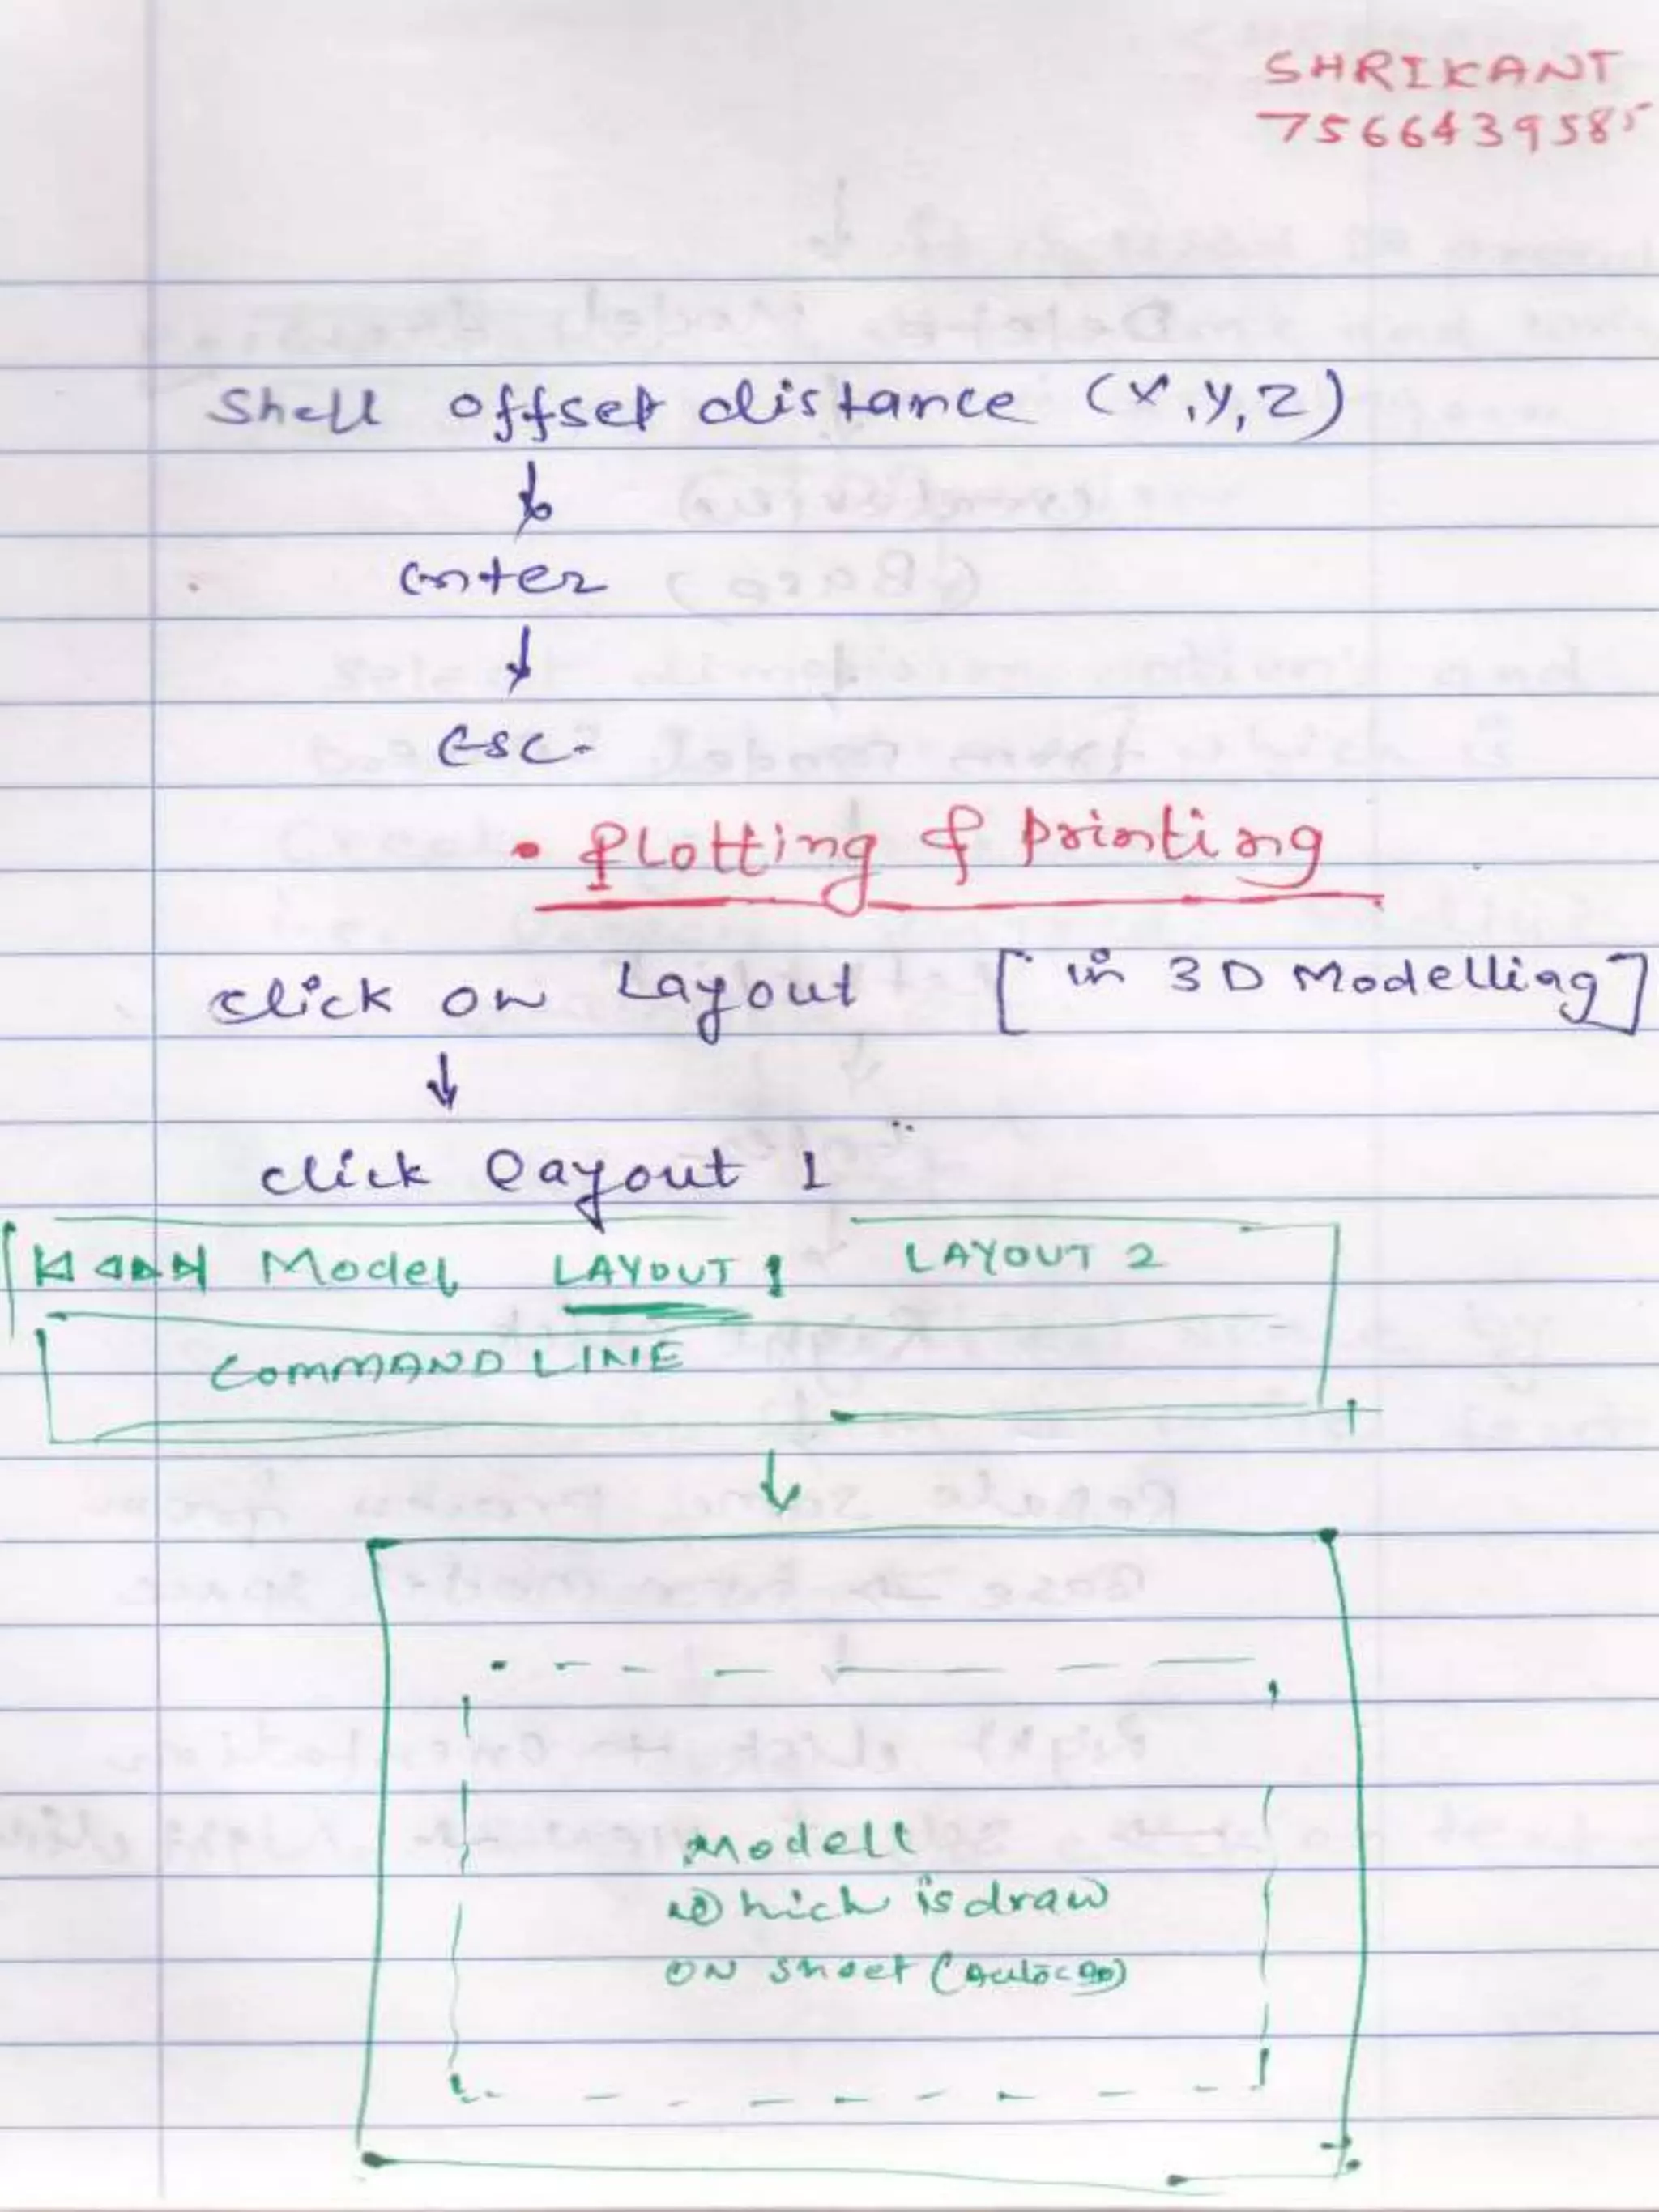 SHRIKANT
7566439585
Shell offset distance (X,Y,Z)
↓
enter
↓
esc.
• Plotting & printing
click on Layout [in 3D Modelling]
↓
click layout 1
Model LAYOUT 1 LAYOUT 2
COMMAND LINE
↓
Modell
which is draw
ON sheet (AutoCAD)